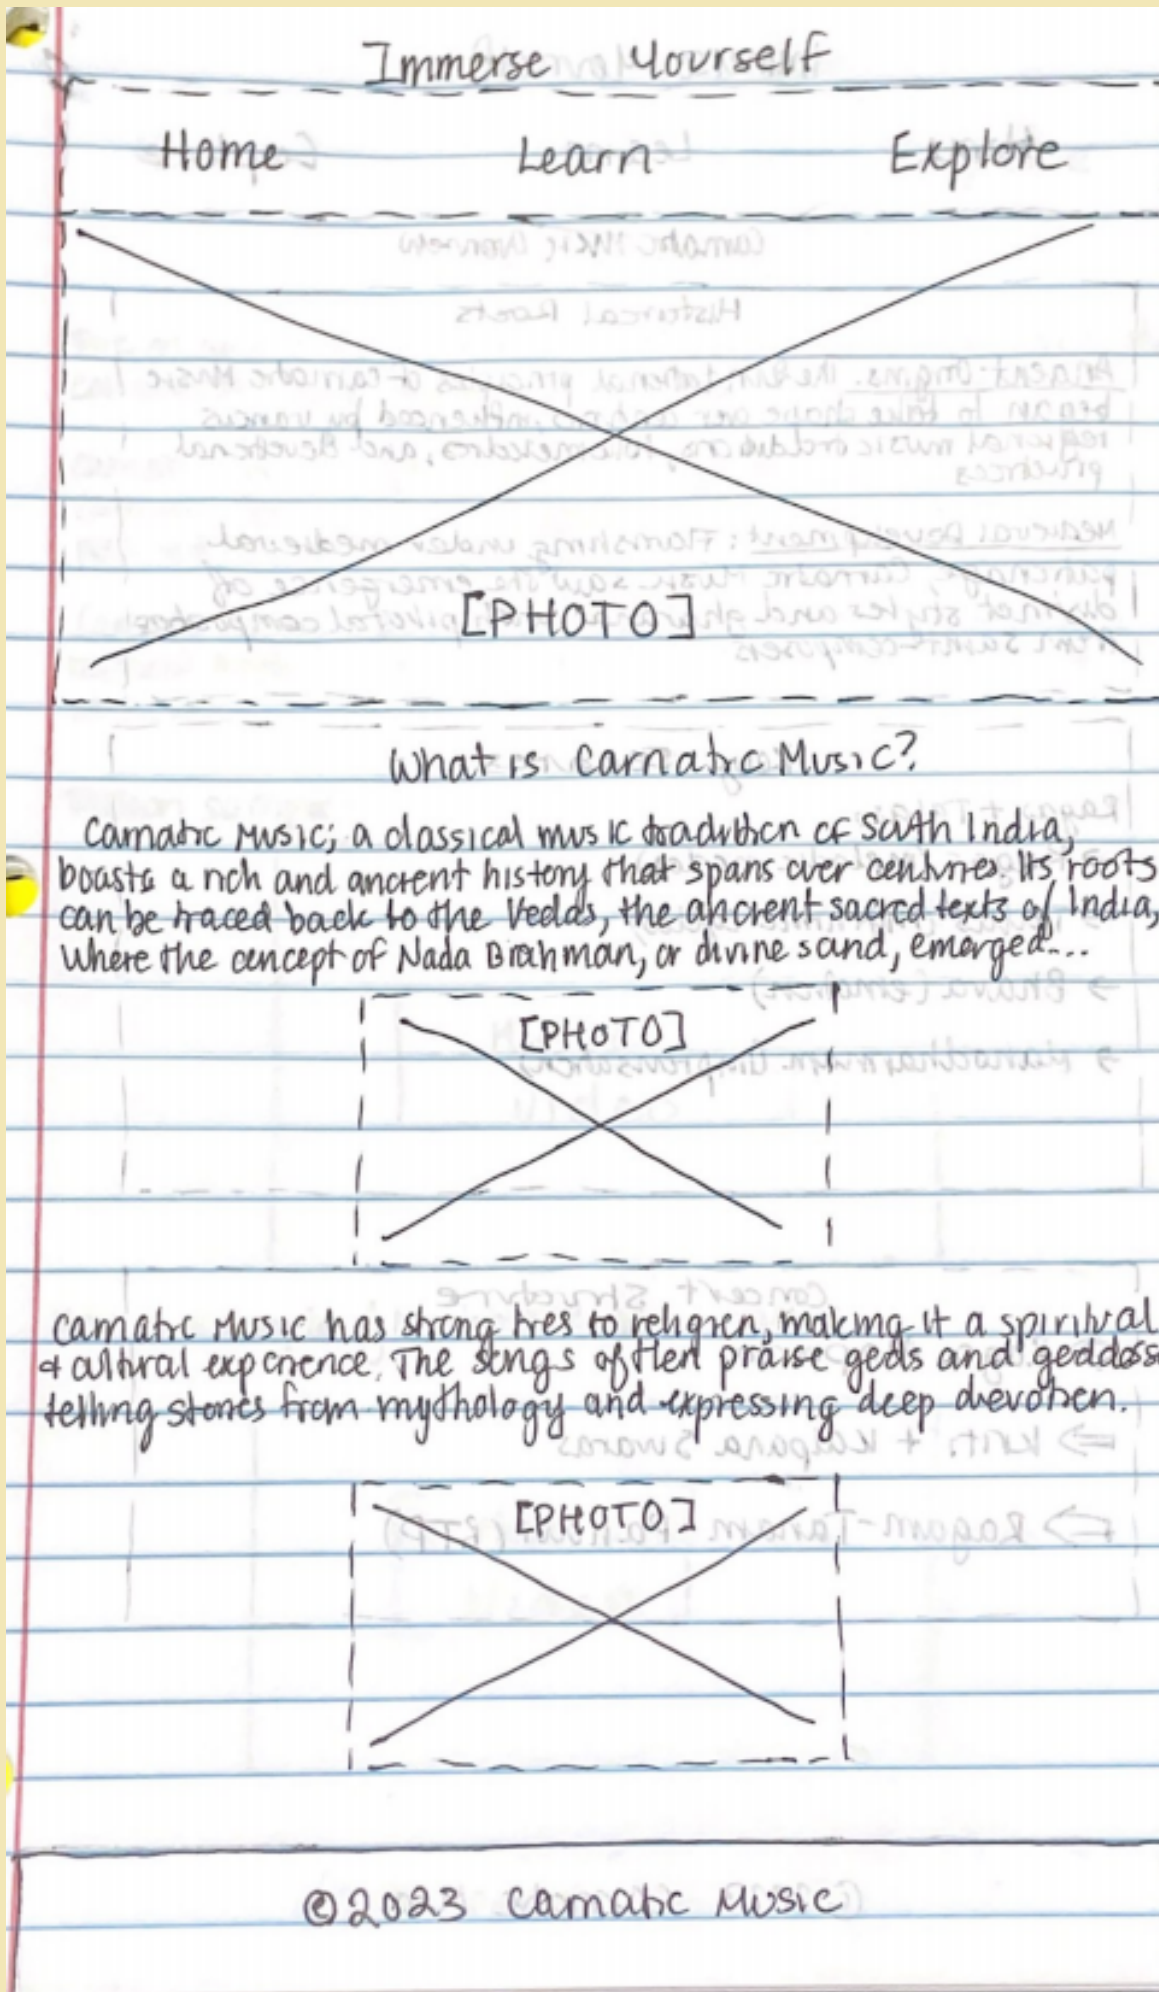 Immerse Yourself
Home Learn Explore
[PHOTO]
What is Carnatic Music?
Carnatic Music; a classical music tradition of South India,
boasts a rich and ancient history that spans over centuries. Its roots
can be traced back to the Vedas, the ancient sacred texts of India,
where the concept of Nada Brahman, or divine sound, emerged...
[PHOTO]
Carnatic Music has strong ties to religion, making it a spiritual
& cultural experience. The songs often praise gods and goddess
telling stories from mythology and expressing deep devotion.
[PHOTO]
©2023 Carnatic Music